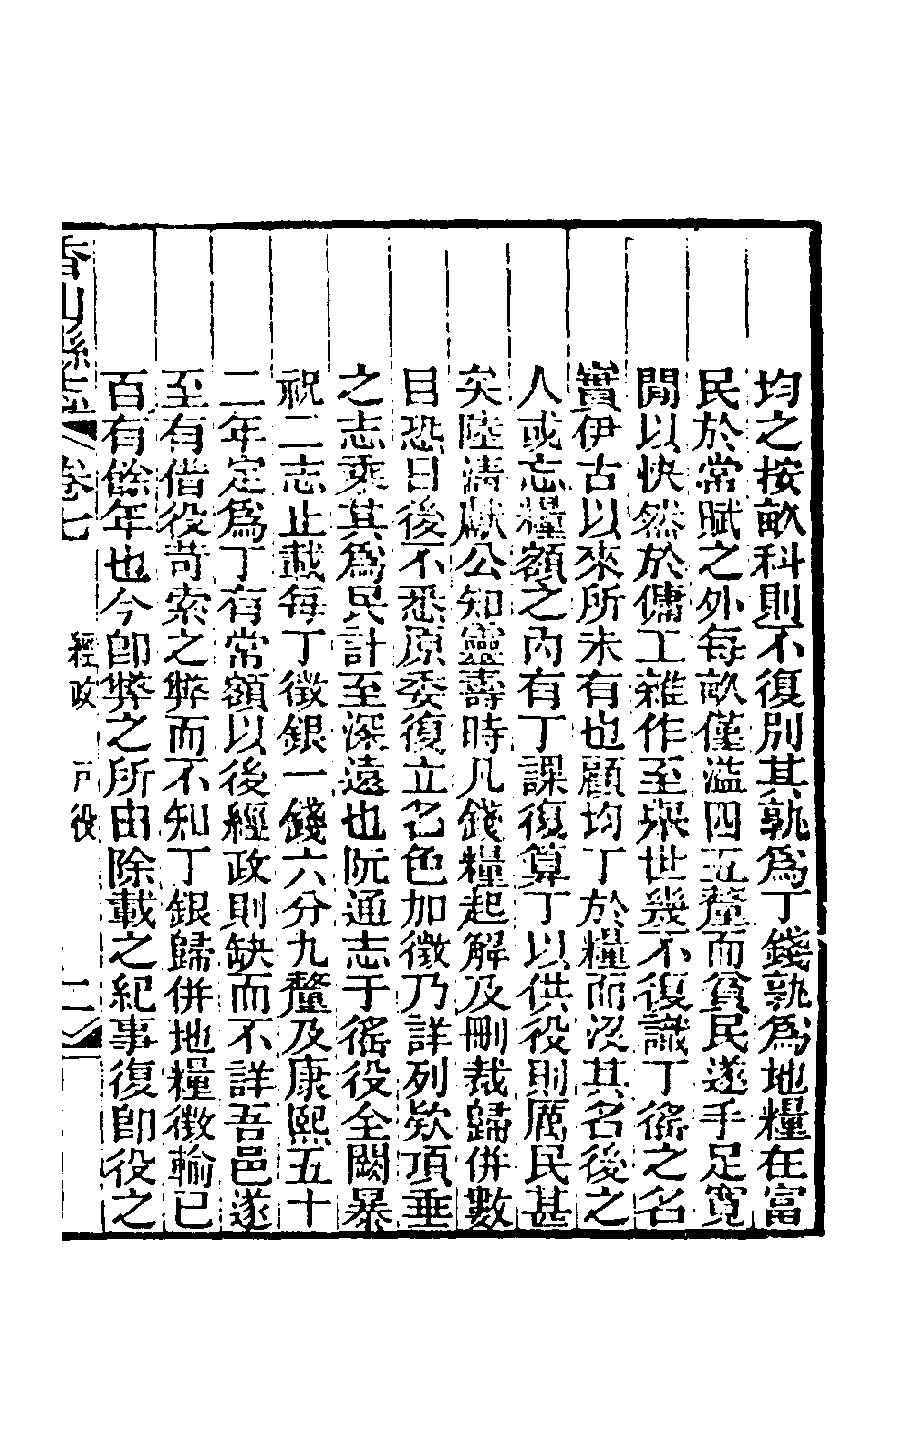 均之按畝科則不復別其孰爲丁錢孰爲地糧在富
民於常賦之外每畝僅溢四五釐而貧民遂手足寬
閒以快然於傭工雜作至舉世幾不復識丁徭之名
實伊古以來所未有也顧均丁於糧而沒其名後之
人或忘糧額之內有丁課復算丁以供役則厲民甚
矣陸清獻公知靈壽時凡錢糧起解及刪裁歸併數
目恐日後不悉原委復立名色加徵乃詳列欵項垂
之志乘其爲民計至深遠也阮通志于徭役全闕暴
祝二志止載每丁徵銀一錢六分九釐及康熙五十
二年定爲丁有常額以後經政則缺而不詳吾邑遂
至有借役苛索之弊而不知丁銀歸併地糧徵輸已
百有餘年也今卽弊之所由除載之紀事復卽役之
香山縣志 卷七 經政 戶役 二